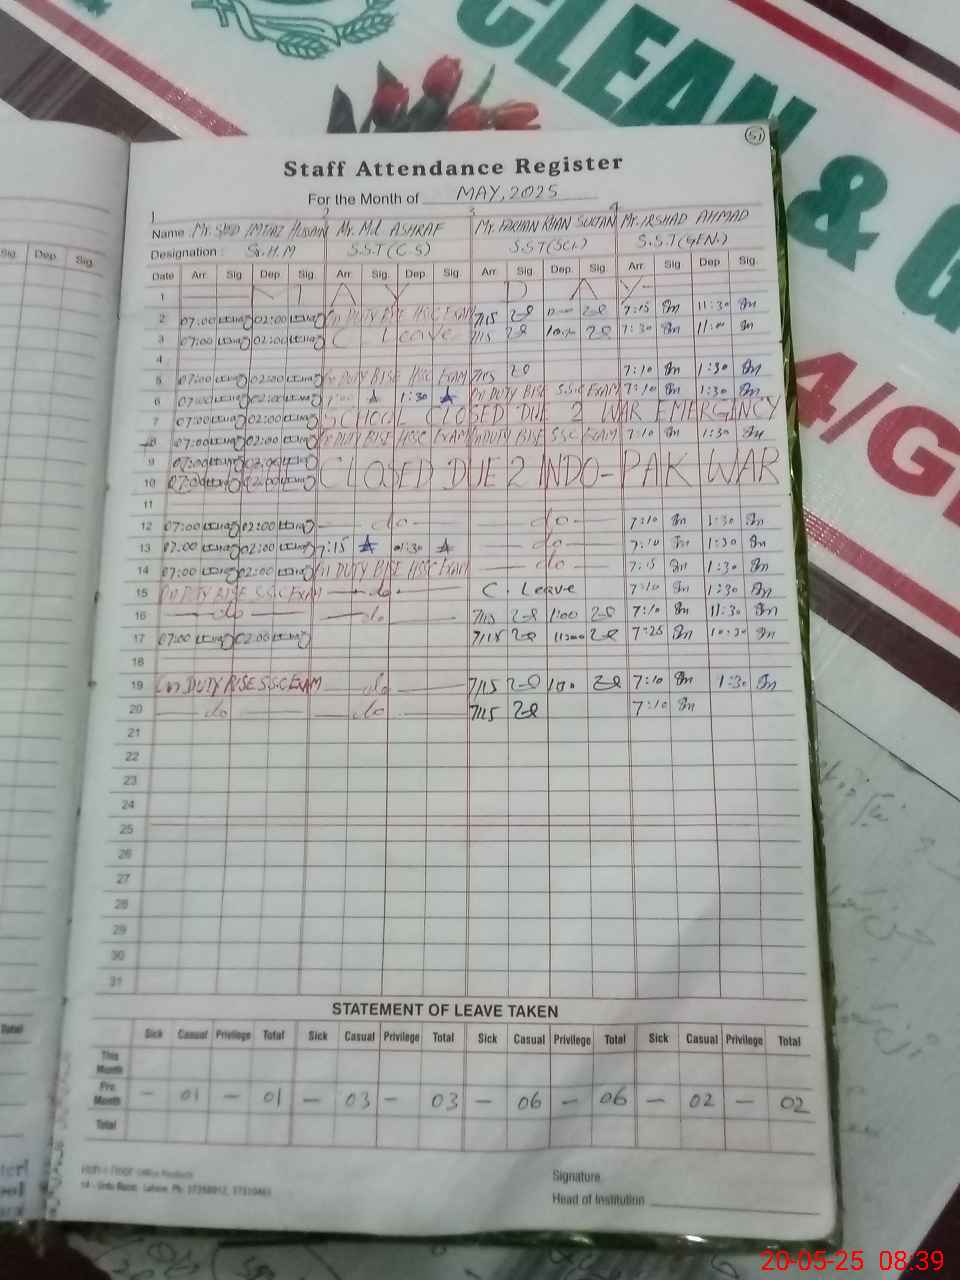 CLEAN & G
4/G
51
Staff Attendance Register
For the Month of MAY, 2025
1 2 3 4
Name : Mr. SYED IMTIAZ HUSSAIN Mr. Md. ASHRAF Mr. FARHAN KHAN SULTAN Mr. IRSHAD AHMAD
Designation : S.H.M S.S.T (C.S) S.S.T (Sci.) S.S.T (GEN.)
Sig. Dep. Sig.
Date Arr. Sig. Dep. Sig. Arr. Sig. Dep. Sig. Arr. Sig. Dep. Sig. Arr. Sig. Dep. Sig.
1 M A Y D A Y
2 07:00 02:00 On DUTY BISE HSSC EXAM 7/15 7:15 11:30
3 07:00 02:00 C. Leave 7/15 7:30 11:00
4
5 07:00 02:00 On DUTY BISE HSSC EXAM 7/15 7:10 1:30
6 07:00 02:00 1:30 On DUTY BISE SSC EXAM 7:10 1:30
7 07:00 02:00 SCHOOL CLOSED DUE 2 WAR EMERGENCY
8 07:00 02:00 On DUTY BISE HSSC EXAM On DUTY BISE SSC EXAM 7:10 1:30
9 07:00 02:00 CLOSED DUE 2 INDO-PAK WAR
10 07:00 02:00
11
12 07:00 02:00 — do — — do — 7:10 1:30
13 07:00 02:00 7:15 01:30 — do — 7:10 1:30
14 07:00 02:00 On DUTY BISE HSSC EXAM — do — 7:15 1:30
15 On DUTY BISE SSC EXAM — do — C. Leave 7:10 1:30
16 — do — — do — 7/15 1:00 7:10 11:30
17 07:00 02:00 7/15 7:25 10:30
18
19 On DUTY BISE SSC EXAM — do — 7/15 7:10 1:30
20 — do — — do — 7/15 7:10
21
22
23
24
25
26
27
28
29
30
31
STATEMENT OF LEAVE TAKEN
Sick Casual Privilege Total Sick Casual Privilege Total Sick Casual Privilege Total Sick Casual Privilege Total
This Month
Pre. Month — 01 — 01 — 03 — 03 — 06 — 06 — 02 — 02
Total
Signature
Head of Institution
20-05-25 08:39